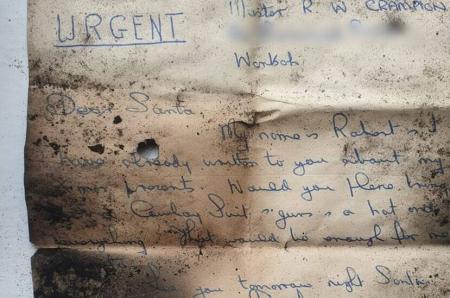 Master R W CRAMPION
URGENT
Worksop
Dear Santa
My name is Robert & I
have already written to you about my
xmas present Would you please bring
a Cowboy Suit & guns & a hat and
everything that would be enough for me
you tomorrow night Santa